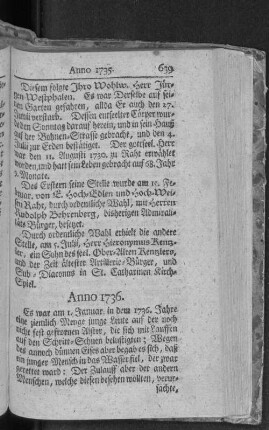 Anno 1735. 639
Diesem folgte Ihro Wohlw. Herr Jür-
gen Westphalen. Es war Derselbe auf sei-
nen Garten gefahren, allda Er auch den 27.
Junii verstarb. Dessen entseelter Cörper wur-
de den Sonntag darauf herein, und in sein Hauß
auf der Bohnen-Strasse gebracht, und den 4.
Julii zur Erden bestätiget. Der gottseel. Herr
war den 11. Augusti 1730. in Raht erwählet
worden, und hatt sein Leben gebracht auf 68. Jahr
2. Monate.
Des Erstern seine Stelle wurde am 11. Fe-
bruar. von E. Hoch-Edlen und Hoch-Wei-
sen Raht, durch ordentliche Wahl, mit Herren
Rudolph Behrenberg, bisherigen Admirali-
täts Bürger, besetzet.
Durch ordentliche Wahl erhielt die andere
Stelle, am 5. Julii, Herr Hieronymus Rentz-
ler, ein Sohn des seel. Ober-Alten Rentzlers,
und der Zeit ältester Artillerie-Bürger, und
Sub-Diaconus in St. Catharinen Kirch-
Spiel.
Anno 1736.
Es war am 1. Januar. in dem 1736. Jahre
eine ziemlich Menge junge Leute auf der noch
nicht fest gefrornen Alster, die sich mit Lauffen
auf den Schritt-Schuen belustigten; Wegen
des annoch dünnen Eises aber begab es sich, daß
ein junger Mensch in das Wasser fiel, der zwar
gerettet ward: Der Zulauff aber der andern
Menschen, welche diesen besehen wolten, verur-
sachte,